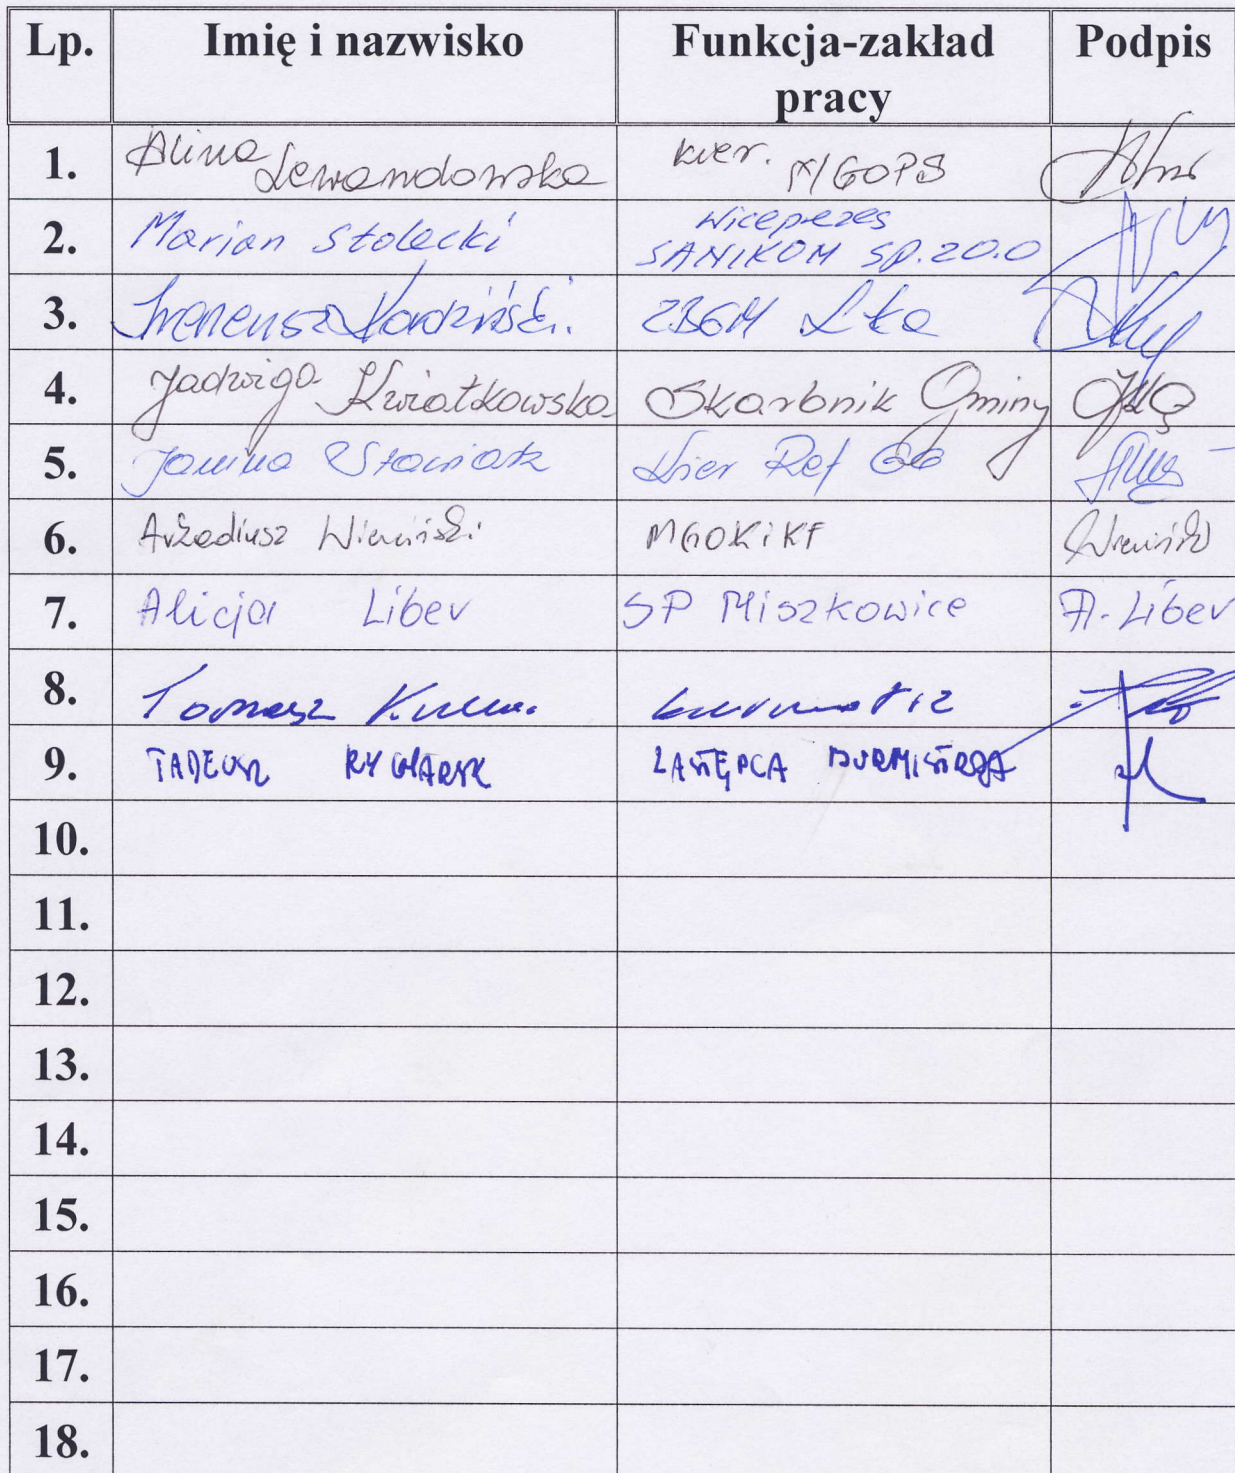 Lp. Imię i nazwisko Funkcja-zakład pracy Podpis
1. Alina Lewandowska kier. M/GOPS
2. Marian Stolecki Wiceprezes SANIKOM SP.ZO.O
3. Ireneusz ZBGM Lka
4. Jadwiga Kwiatkowska Skarbnik Gminy
5. Janina Kier Ref
6. Arkadiusz MGOKiKF
7. Alicja Liber SP Miszkowice A. Liber
8. Tomasz
9. TADEUSZ ZASTĘPCA BURMISTRZA
10.
11.
12.
13.
14.
15.
16.
17.
18.